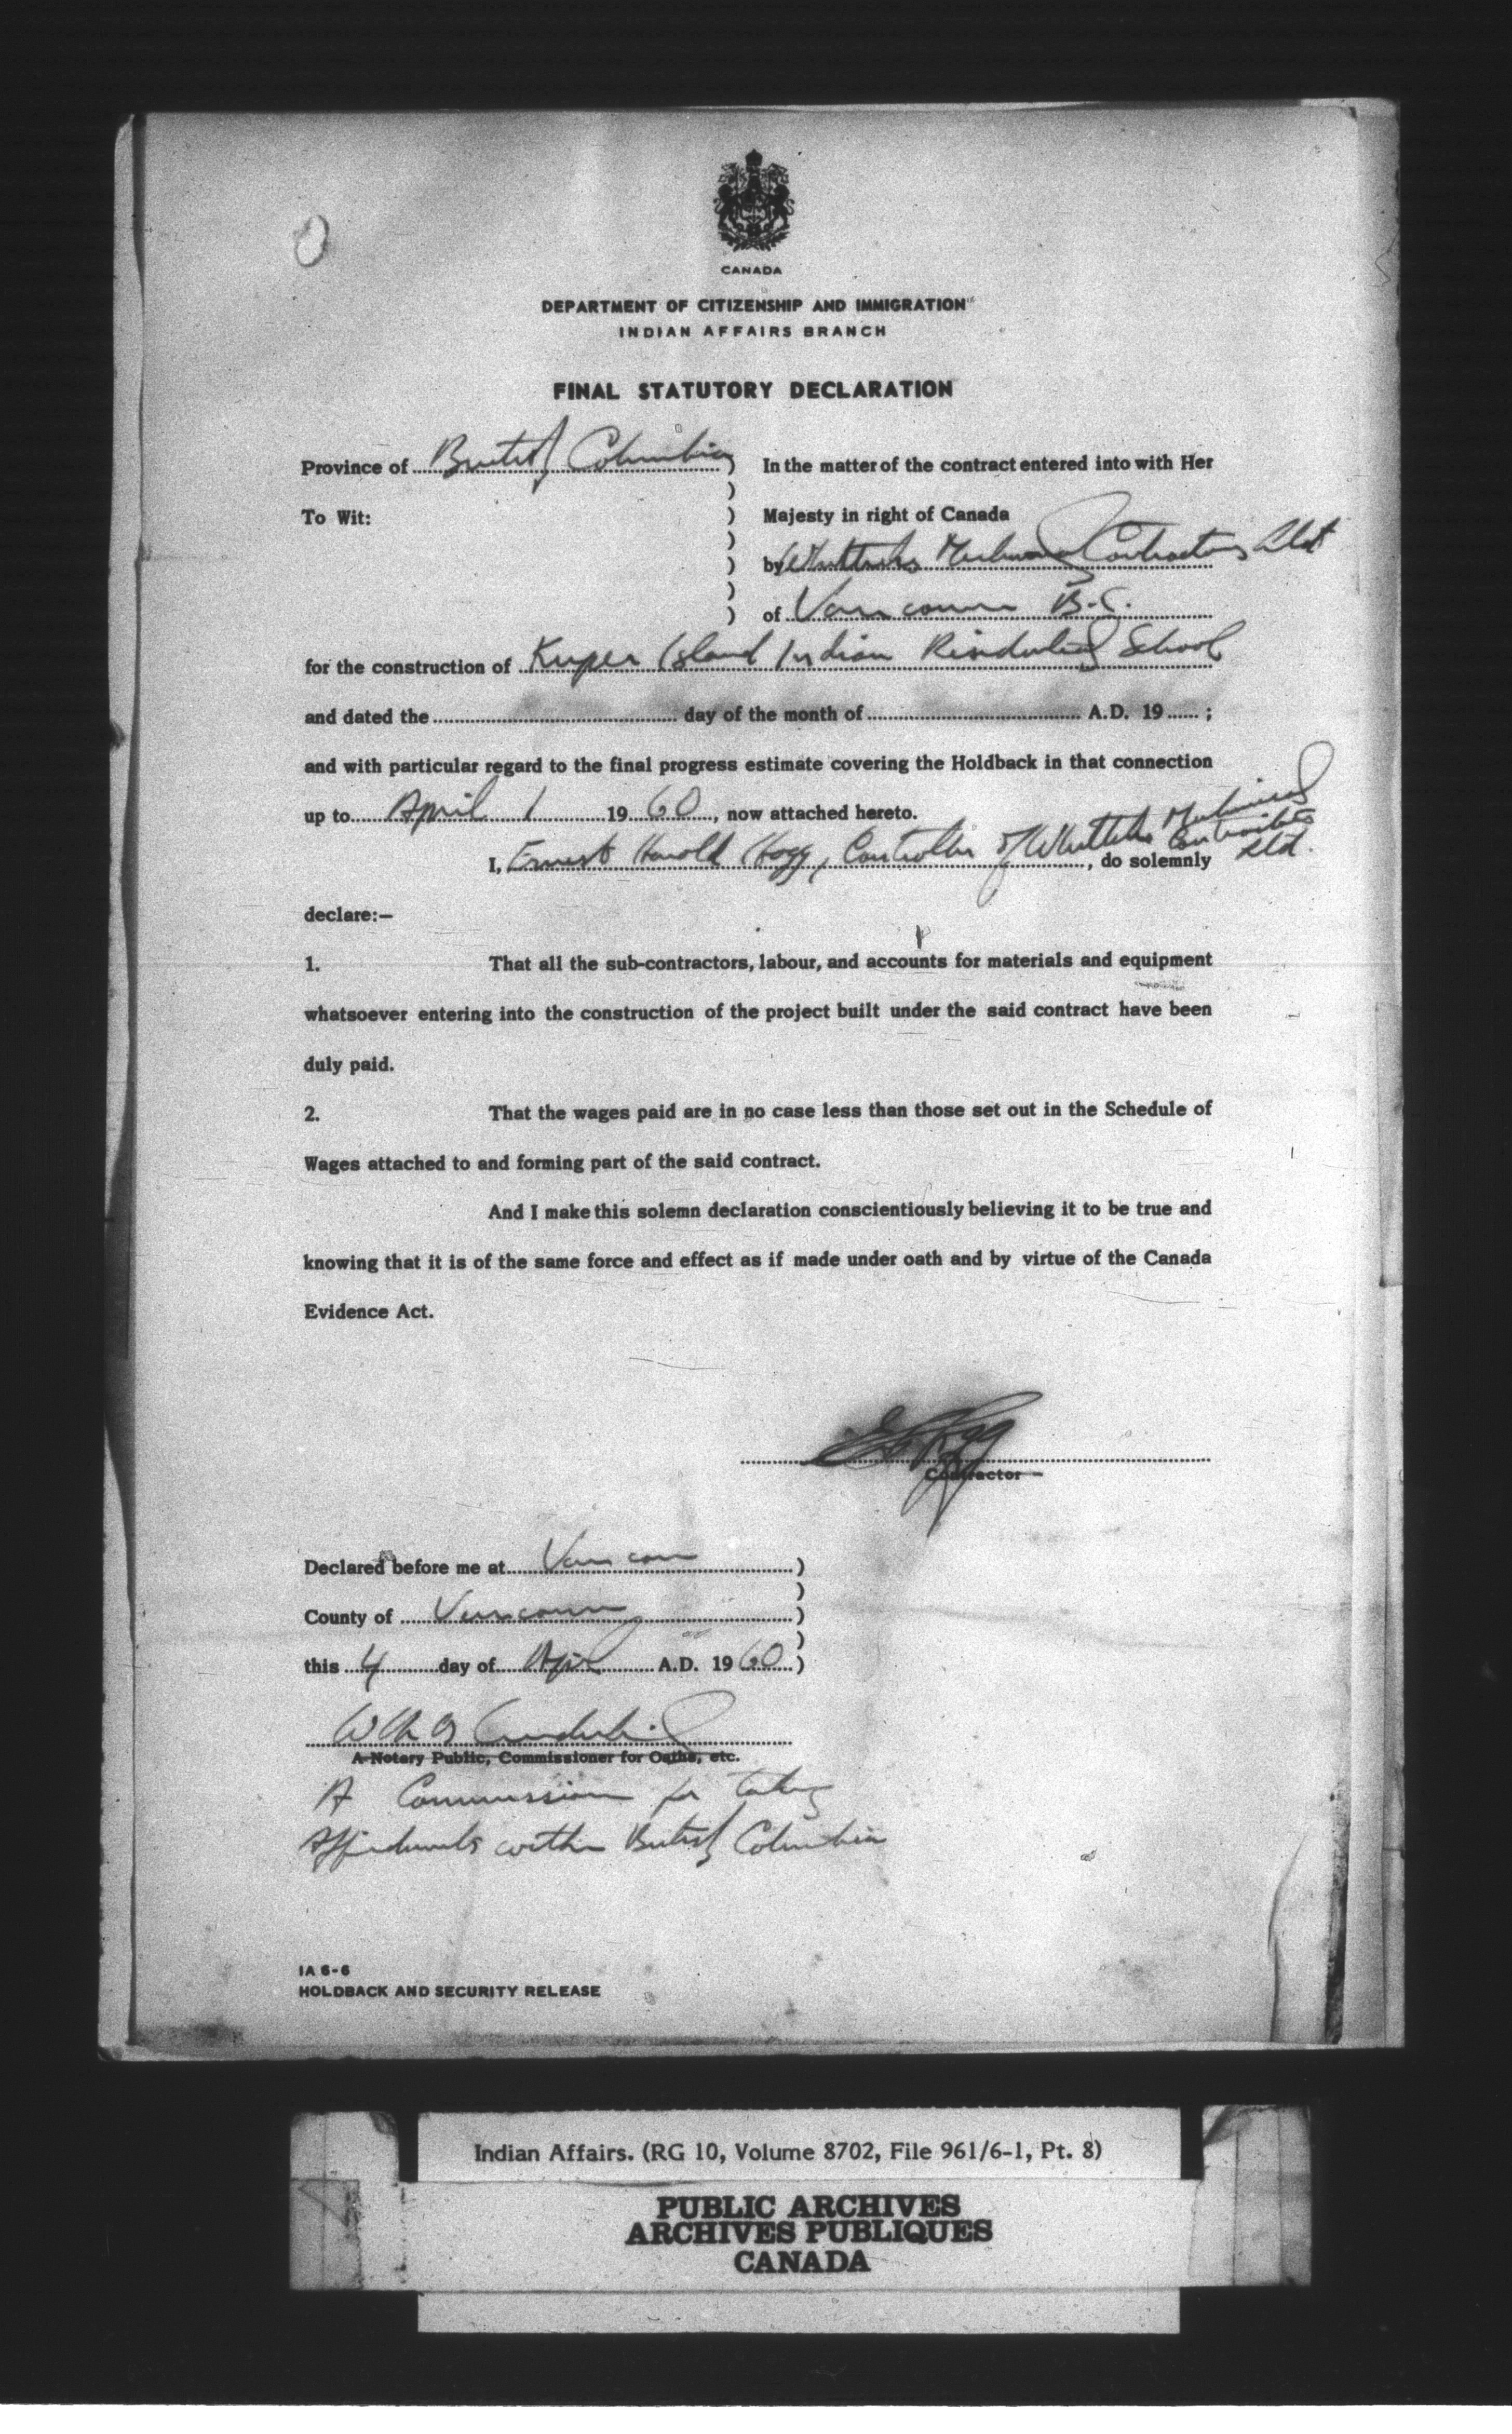 CANADA
DEPARTMENT OF CITIZENSHIP AND IMMIGRATION
INDIAN AFFAIRS BRANCH
FINAL STATUTORY DECLARATION
Province of British Columbia ) In the matter of the contract entered into with Her
To Wit: ) Majesty in right of Canada
) by Contractors Ltd
) of Vancouver B.C.
for the construction of Kuper Island Indian Residential School
and dated the day of the month of A.D. 19 ;
and with particular regard to the final progress estimate covering the Holdback in that connection
up to April 1 19 60, now attached hereto.
I, Ernest Harold Hogg, Controller of Mechanical Contractors Ltd., do solemnly
declare:—
1. That all the sub-contractors, labour, and accounts for materials and equipment
whatsoever entering into the construction of the project built under the said contract have been
duly paid.
2. That the wages paid are in no case less than those set out in the Schedule of
Wages attached to and forming part of the said contract.
And I make this solemn declaration conscientiously believing it to be true and
knowing that it is of the same force and effect as if made under oath and by virtue of the Canada
Evidence Act.
Contractor
Declared before me at Vancouver )
County of Vancouver )
this 4 day of April A.D. 19 60 )
A Notary Public, Commissioner for Oaths, etc.
A Commissioner for taking
Affidavits within British Columbia
IA 6-6
HOLDBACK AND SECURITY RELEASE
Indian Affairs. (RG 10, Volume 8702, File 961/6-1, Pt. 8)
PUBLIC ARCHIVES
ARCHIVES PUBLIQUES
CANADA